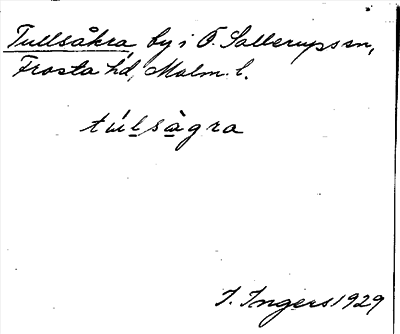 Tullsåkra by i Ö. Sallerups sn,
Frosta hd, Malm. l.
túlsàgra
I. Ingers 1929